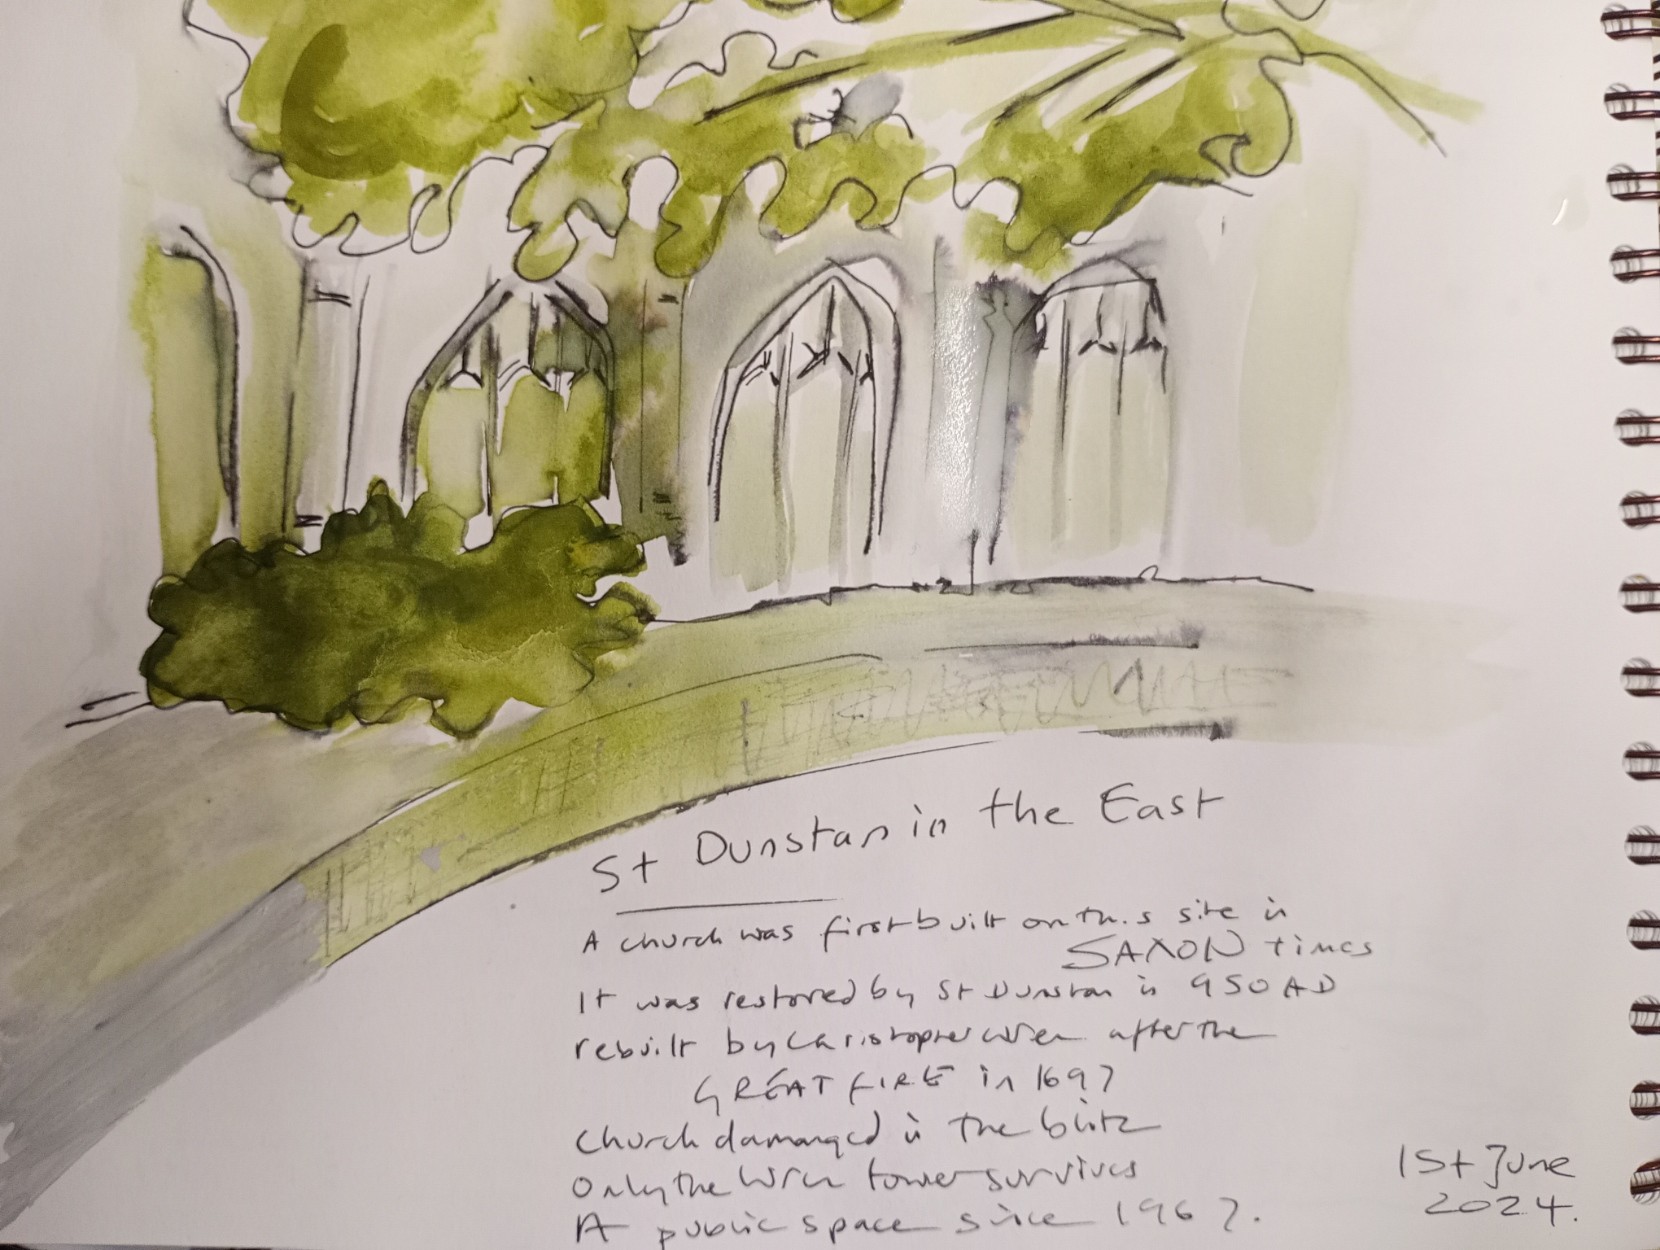 St Dunstan in the East
A church was first built on this site in
SAXON times
It was restored by St Dunstan in 950 AD
rebuilt by Christopher Wren after the
GREAT FIRE in 1697
Church damanged in the blitz
Only the Wren tower survives
A public space since 1967.
1St June
2024.